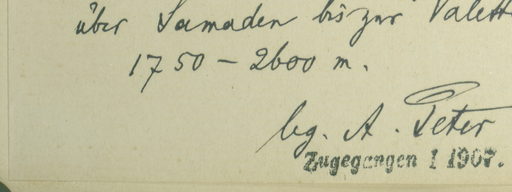 über Samaden bis zur Valett
1750 - 2600 m.
lg. A. Peter
Zugegangen 1 1907.